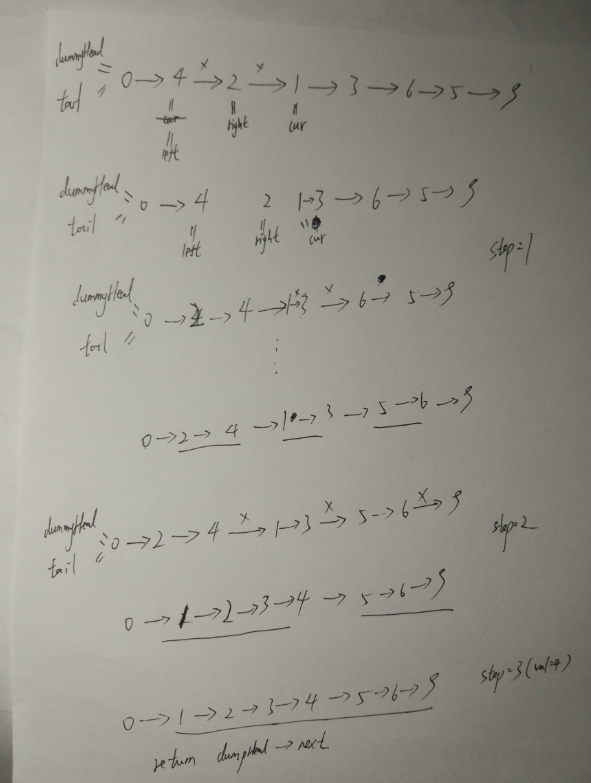 dummyHead
=
0 → 4 → 2 → 1 → 3 → 6 → 5 → 9
x x
tail =
= = =
cur right cur
=
left
dummyHead
= 0 → 4 2 1→3 → 6 → 5 → 9
tail =
= = =
left right cur
step=1
dummyHead
= 0 → 2 → 4 → 1→3 → 6 5 → 9
x x
tail =
0 → 2 → 4 → 1 → 3 → 5 → 6 → 9
dummyHead
= 0 → 2 → 4 → 1 → 3 → 5 → 6 → 9
x x x
tail =
step=2
0 → 1 → 2 → 3 → 4 → 5 → 6 → 9
step=3 (val=4)
0 → 1 → 2 → 3 → 4 → 5 → 6 → 9
return → next